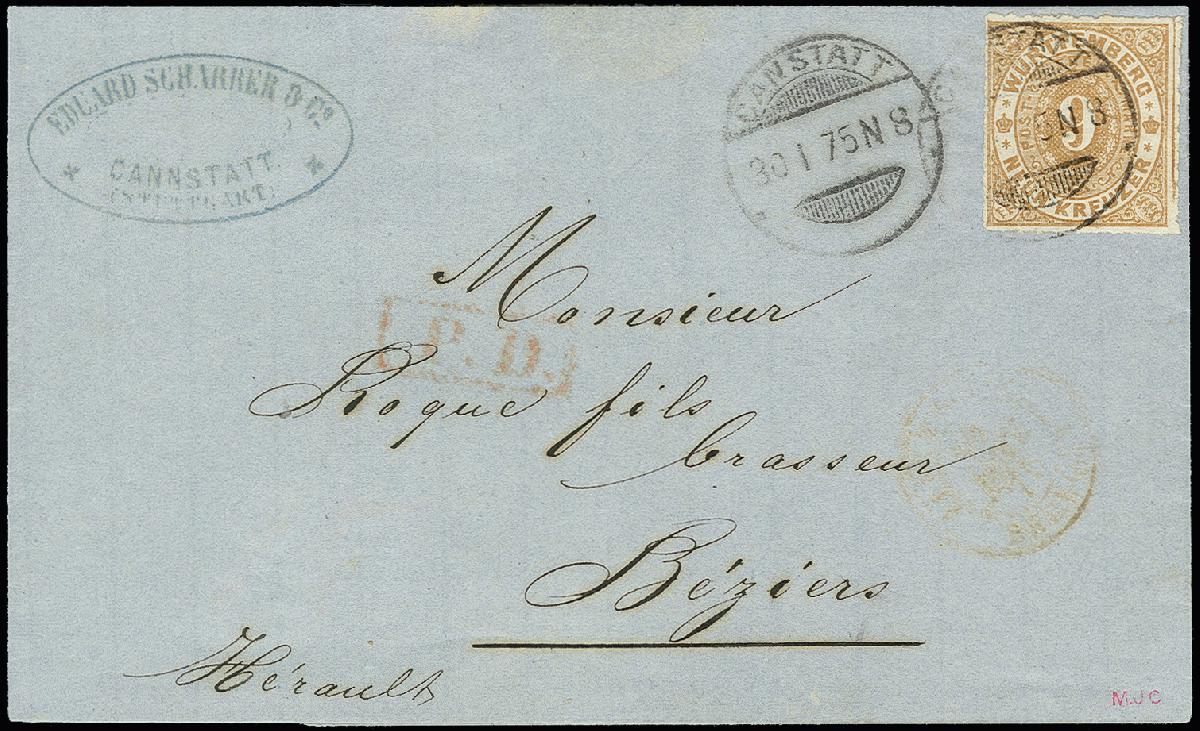 EDUARD SCHARRER & Cº
CANNSTATT.
(STUTTGART)
CANSTATT
30 I 75 N 8
STATT
5 N 8
WÜRTTEMBERG
POST
9
NEUN KREUZER
P. D.
Monsieur
Roque fils
brasseur
Béziers
Hérault
MJC